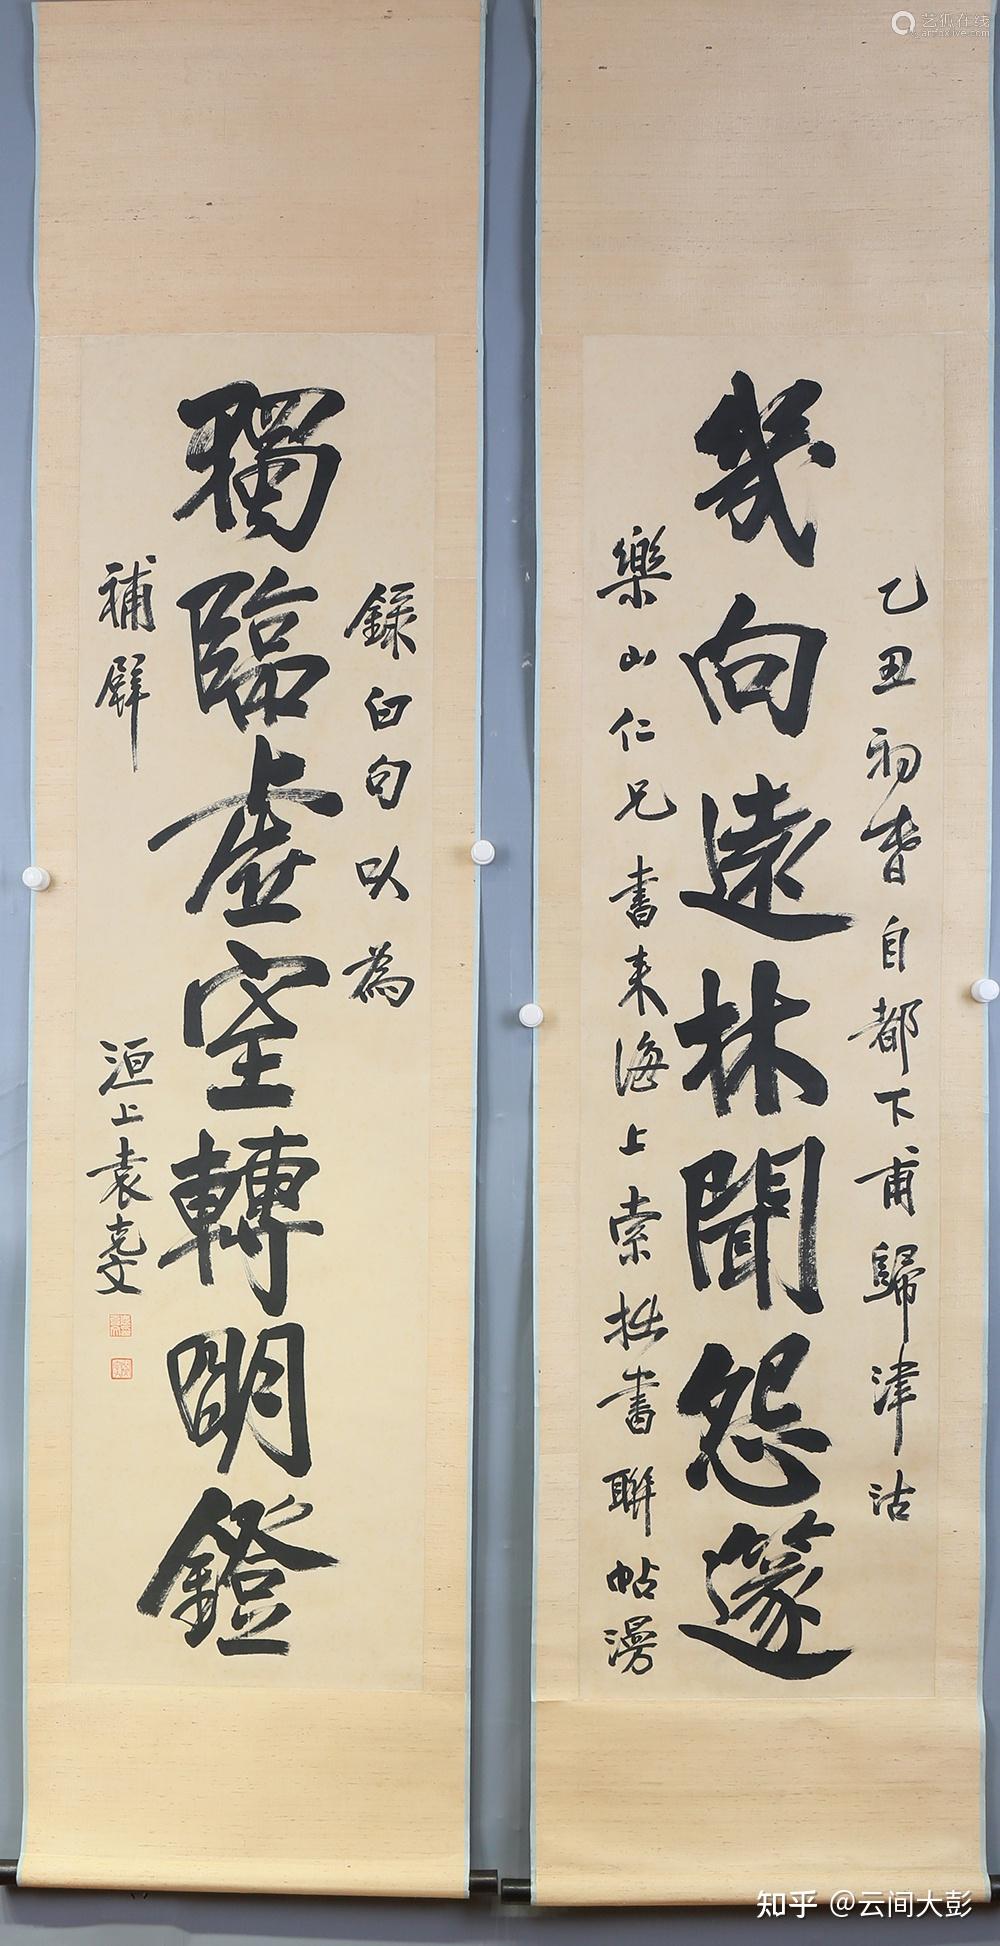 艺狐在线
artfoxlive.com
乙丑初旾自都下甫歸津沽
幾向遠林聞怨篴
樂山仁兄書来海上索拙書聯帖漫
錄臼句以為
獨臨虛室轉明鐙
補壁
洹上袁克文
知乎 @云间大彭